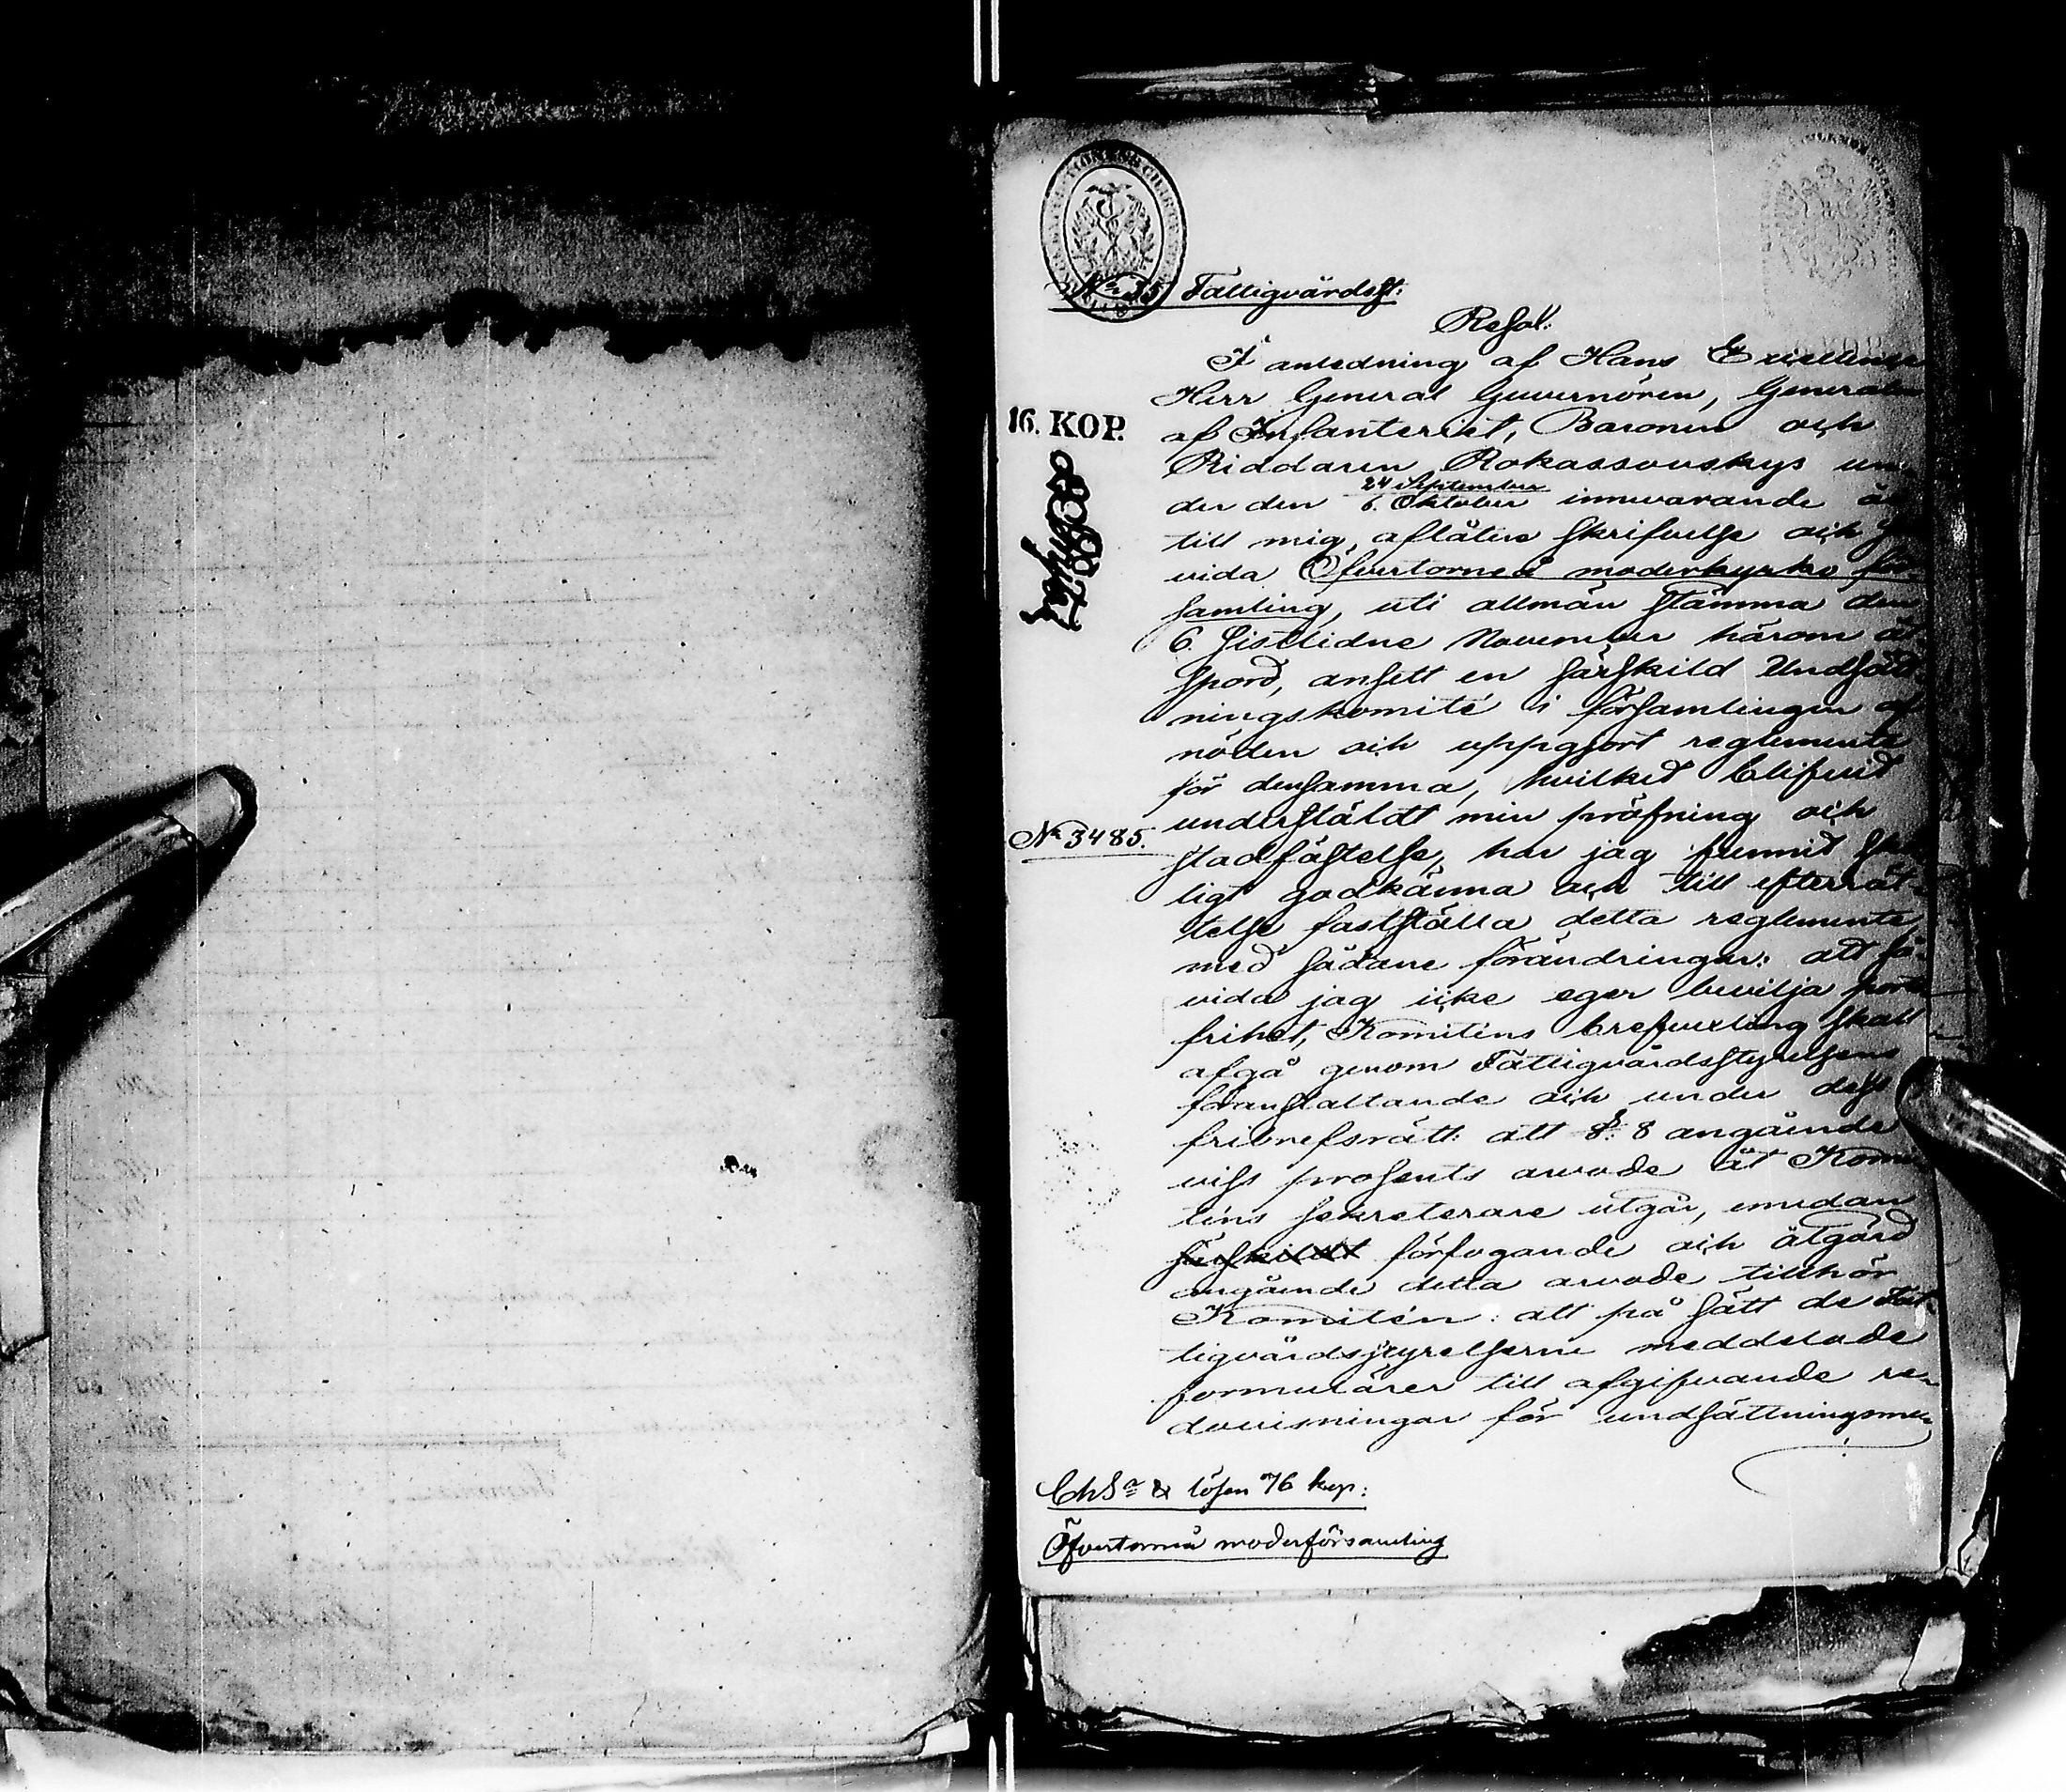 No 35 Fattigvårdsst:
Resol:
I anledning af Hans Excellence
Herr General Guvernören, Generalen
af Infanteriet, Baronen och
Riddaren Rokassovskys un-
24 September
der den 6. Oktober innevarande år
till mig aflåtne skrifvelse och
vida Öfvertorneå moderkyrko för-
samling, uti allmän stämma den
6. sistlidne November härom åt-
spord, ansett en särskild Undsätt-
ningskomité i församlingen af
nöden och uppgjort reglemente
för densamma, hvilket blifvit
No 3485.
underställdt min pröfning och
stadfästelse, har jag funnit skä-
ligt godkänna och till efterrät-
telse fastställa detta reglemente,
med sådane förändringar: att så-
vida jag icke eger bevilja port
frihet, Komiténs brefvexling skall
afgå genom Fattigvårdsstyrelsens
föranstaltande och under dess
fribrefsrätt: att §. 8 angående
viss prosents arvode åt Komi-
téns sekreterare utgår, emedan
särskildt förfogande och åtgärd
angående detta arvode tillhör
Komitén: att på sätt de Fat-
tigvårdsstyrelserne meddelade
formulärer till afgifvande re-
dovisningar för undsättningsme-
16. KOP.
ChSa & lösen 76 kop:
Öfvertorneå moderförsamling